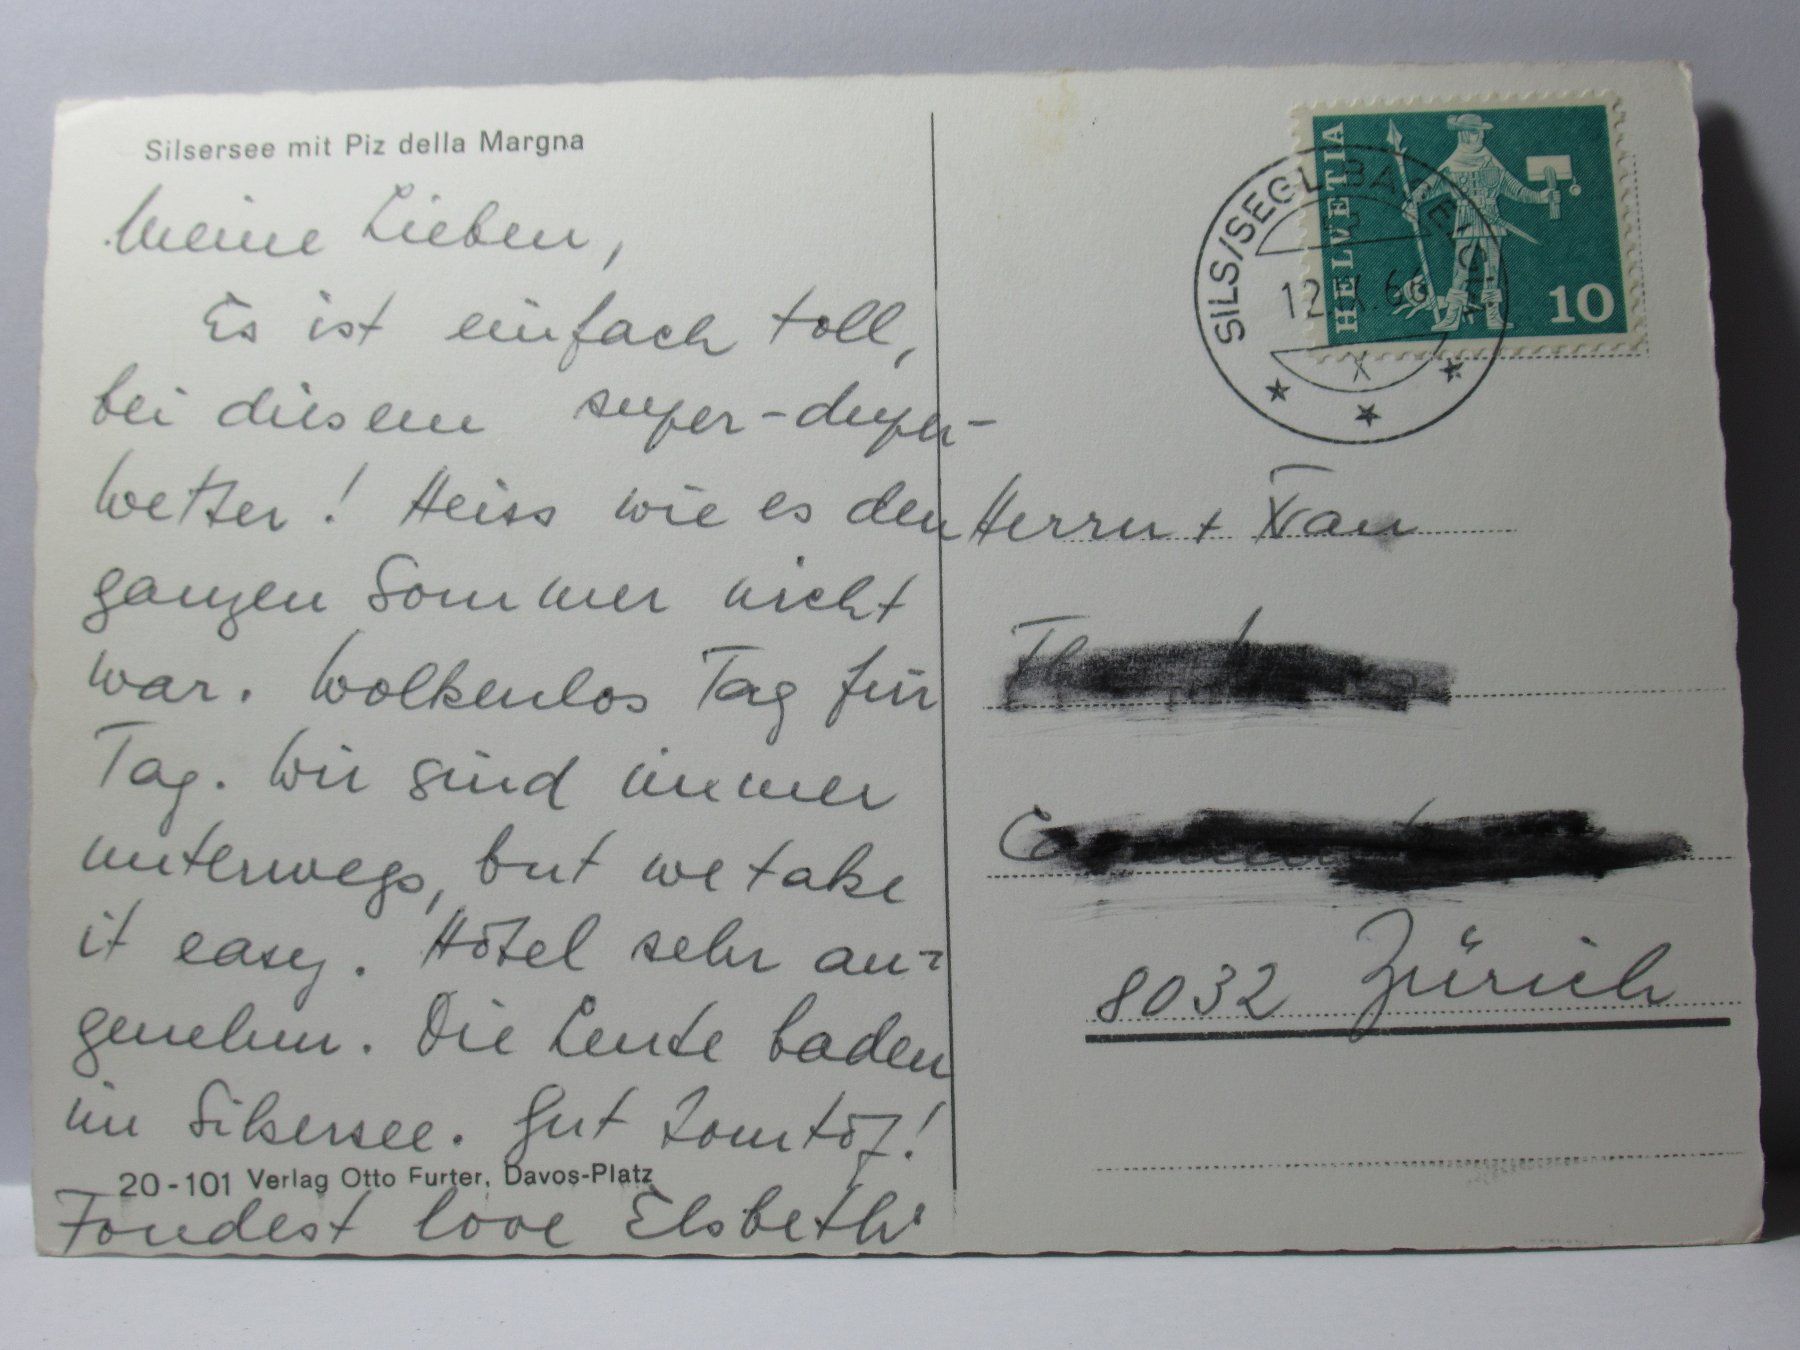 Silsersee mit Piz della Margna
Meine Lieben,
Es ist einfach toll,
bei diesem super-duper-
Wetter! Heiss wie es den
ganzen Sommer nicht
war. Wolkenlos Tag für
Tag. Wir sind immer
unterwegs, but we take
it easy. Hotel sehr an-
genehm. Die Leute baden
im Silsersee. Gut
20-101 Verlag Otto Furter, Davos-Platz
Fondest love Elsbeth
HELVETIA
10
SILS/SEGL
12. 66
X
Herrn + Frau
8032 Zürich